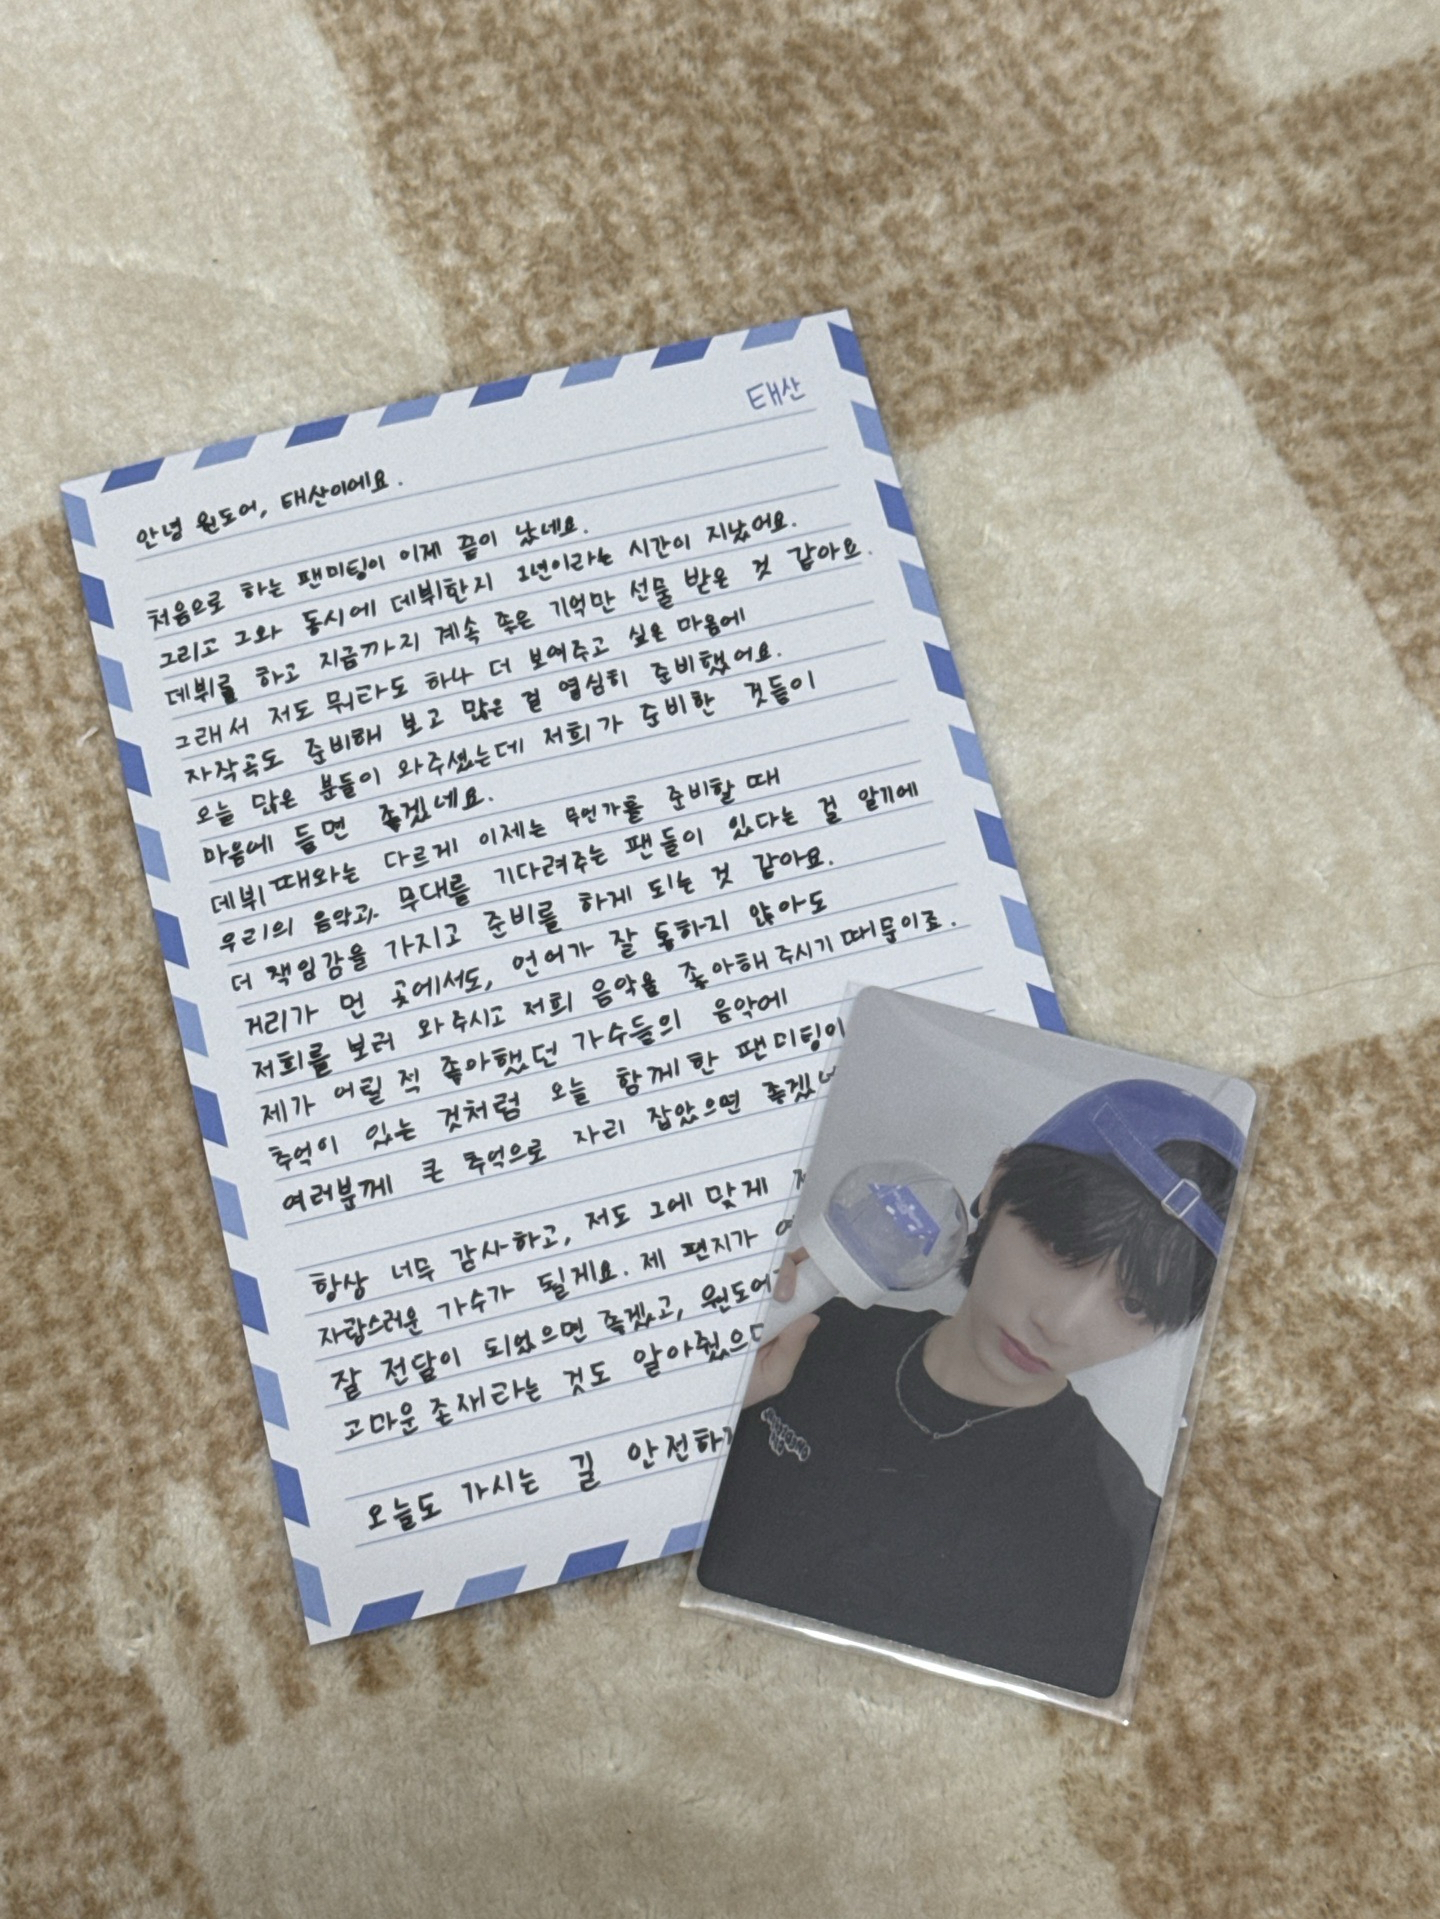 태산
안녕 원도어, 태산이에요.
처음으로 하는 팬미팅이 이제 끝이 났네요.
그리고 그와 동시에 데뷔한지 1년이라는 시간이 지났어요.
데뷔를 하고 지금까지 계속 좋은 기억만 선물 받은 것 같아요.
그래서 저도 뭐라도 하나 더 보여주고 싶은 마음에
자작곡도 준비해 보고 많은 걸 열심히 준비했어요.
오늘 많은 분들이 와주셨는데 저희가 준비한 것들이
마음에 들면 좋겠네요.
데뷔 때와는 다르게 이제는 무언가를 준비할 때
우리의 음악과 무대를 기다려주는 팬들이 있다는 걸 알기에
더 책임감을 가지고 준비를 하게 되는 것 같아요.
거리가 먼 곳에서도, 언어가 잘 통하지 않아도
저희를 보러 와주시고 저희 음악을 좋아해 주시기 때문이죠.
제가 어릴 적 좋아했던 가수들의 음악에
추억이 있는 것처럼 오늘 함께한 팬미팅이
여러분께 큰 추억으로 자리 잡았으면 좋겠
항상 너무 감사하고, 저도 그에 맞게
자랑스러운 가수가 될게요. 제 편지가
잘 전달이 되었으면 좋겠고, 원도어
고마운 존재라는 것도 알아줬으
오늘도 가시는 길 안전하